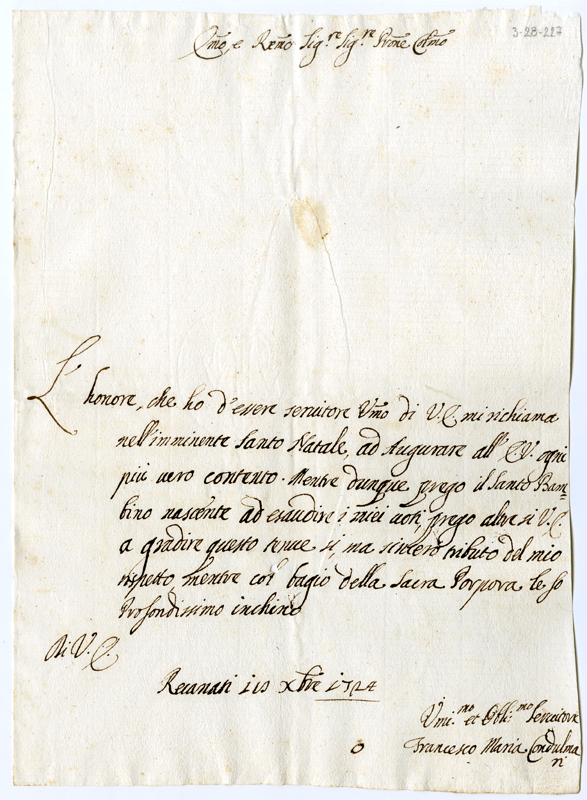 3-28-227
Emo, e Remo Sig.re Sig.re Prne Colmo
L'honore, che ho d'essere servitore Vmo di V.E. mi richiama
nell'imminente Santo Natale, ad Augurare all'E.V. ogni
più vero contento. Mentre dunque prego il Santo Bam=
bino nascente ad esaudire i miei voti, prego altre sì V.E.
a gradire questo tenue sì, ma sincero tributo del mio
rispetto, mentre col bagio della Sacra Porpora le fo
Profondissimo inchino
Di V.E.
Recanati 10 Xbre 1724
Vmi.mo et Obli.mo Servitore
Francesco Maria Condulma
ri